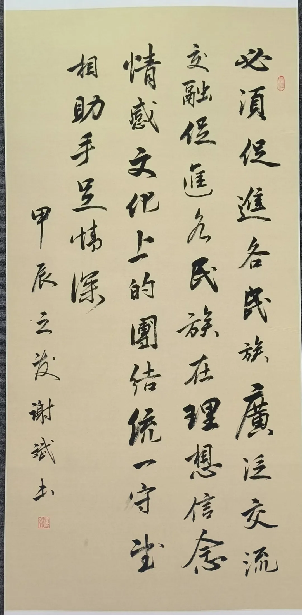 必須促進各民族廣泛交流
交融促進各民族在理想信念
情感文化上的團結統一守望
相助手足情深
甲辰立夏謝斌书